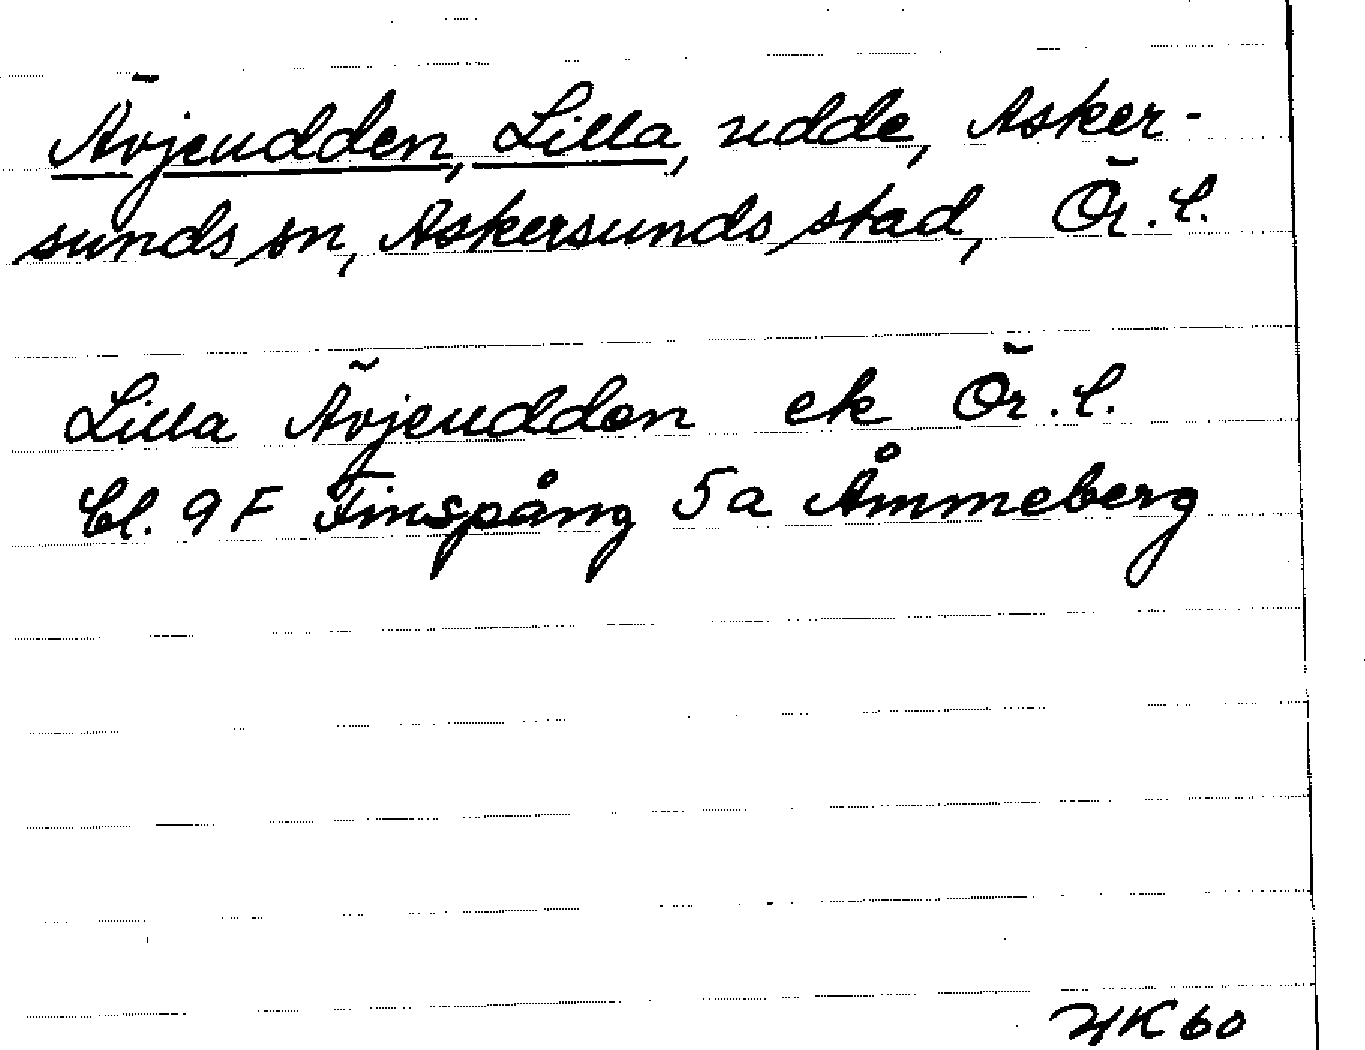 Ävjeudden, Lilla, udde, Asker-
sunds sn, Askersunds stad, Ör. l.
Lilla Ävjeudden ek Ör. l.
Bl. 9 F Finspång 5a Åmmeberg
HK 60